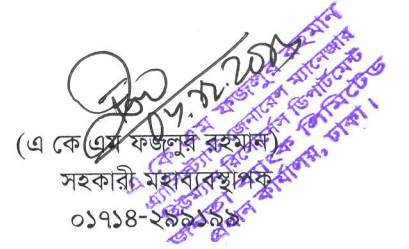 ০৭.১২.২০১৯
(এ কে এম ফজলুর রহমান)
সহকারী মহাব্যবস্থাপক
০১৭১৪-২৯৯১৯৯
এ কে এম ফজলুর রহমান
এ্যাসিস্ট্যান্ট জেনারেল ম্যানেজার
হিউম্যান রিসোর্সেস ডিপার্টমেন্ট
জনতা ব্যাংক লিমিটেড
প্রধান কার্যালয়, ঢাকা।